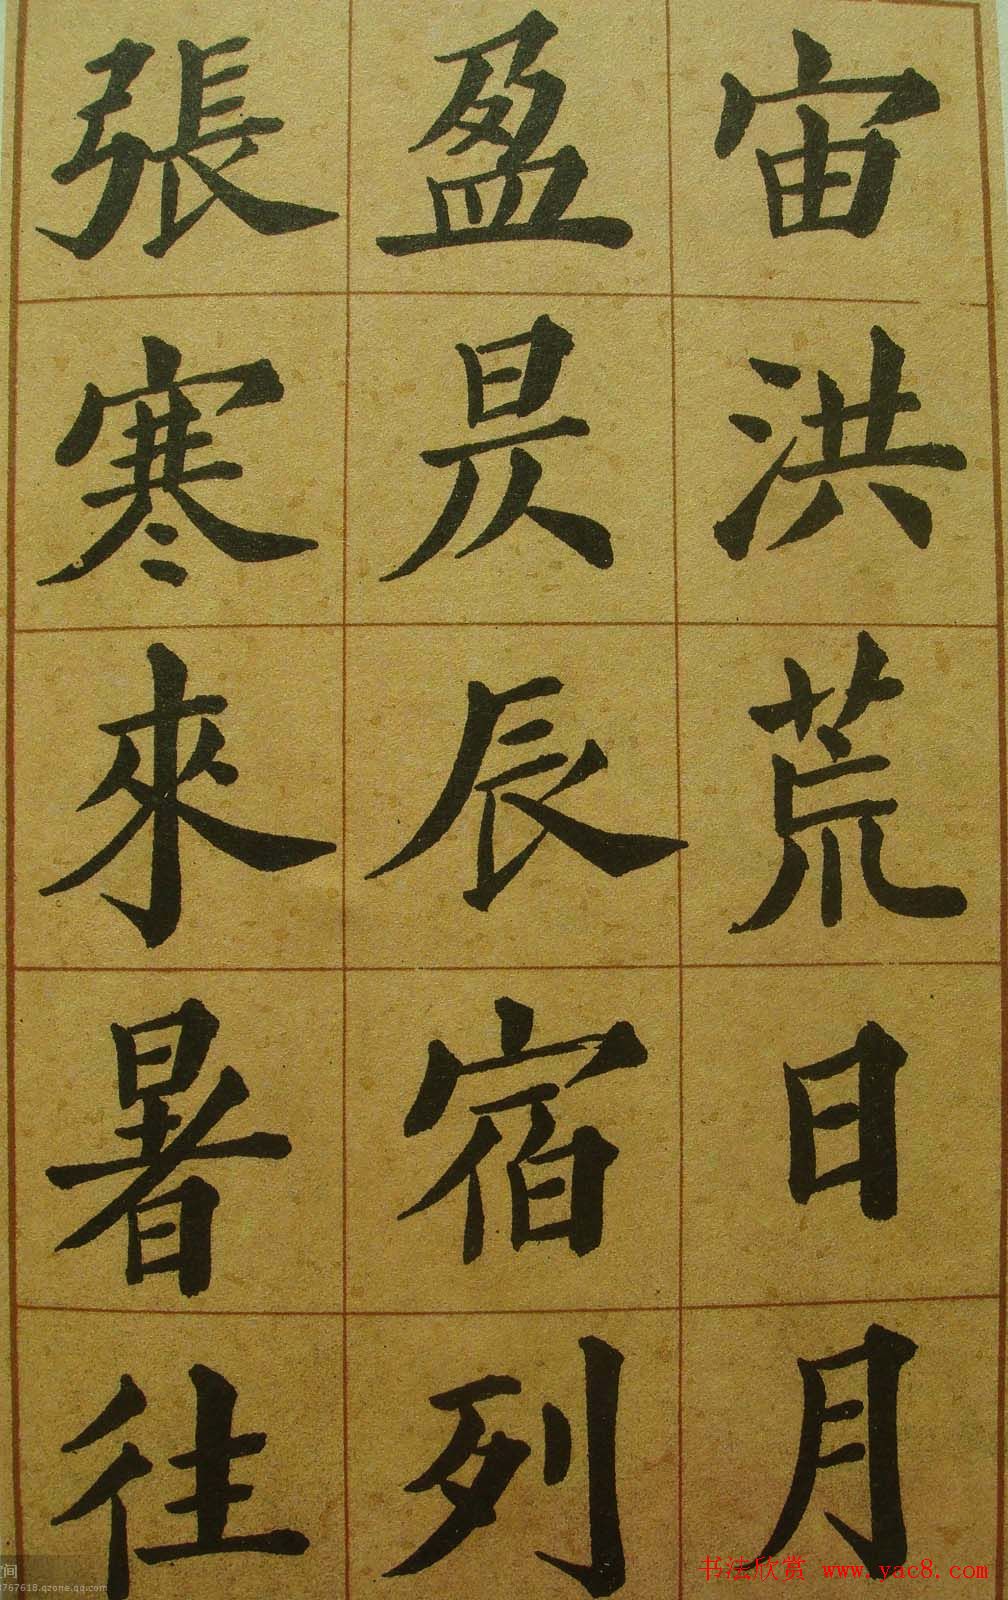 宙洪荒日月
盈昃辰宿列
張寒來暑往
书法欣赏 www.yac8.com
空间
3767618.qzone.qq.com